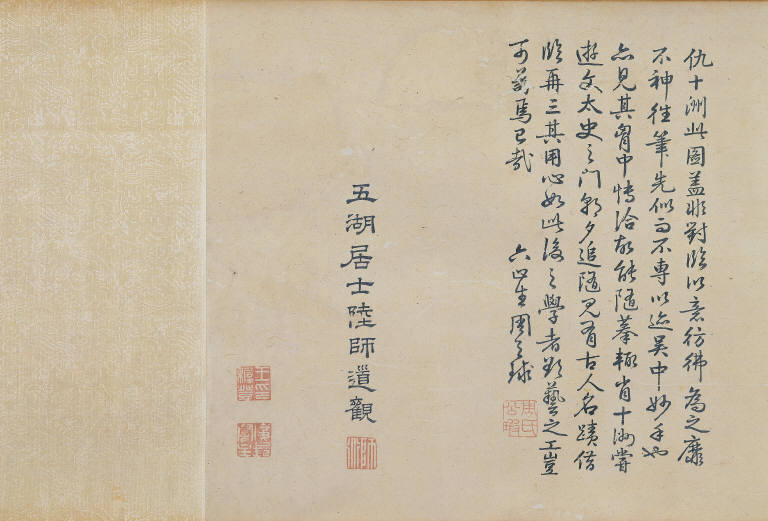 仇十洲此圖蓋非對臨以意彷彿為之靡
不神往筆先似而不專以迹吳中妙手如
亦見其胷中博洽故能隨摹輒肖十洲嘗
遊文太史之門朝夕追隨見有古人名蹟借
臨再三其用心如此後之學者欲藝之工豈
可苟焉已哉
六止生周之球
周氏公瑕
五湖居士陸師道觀
師道